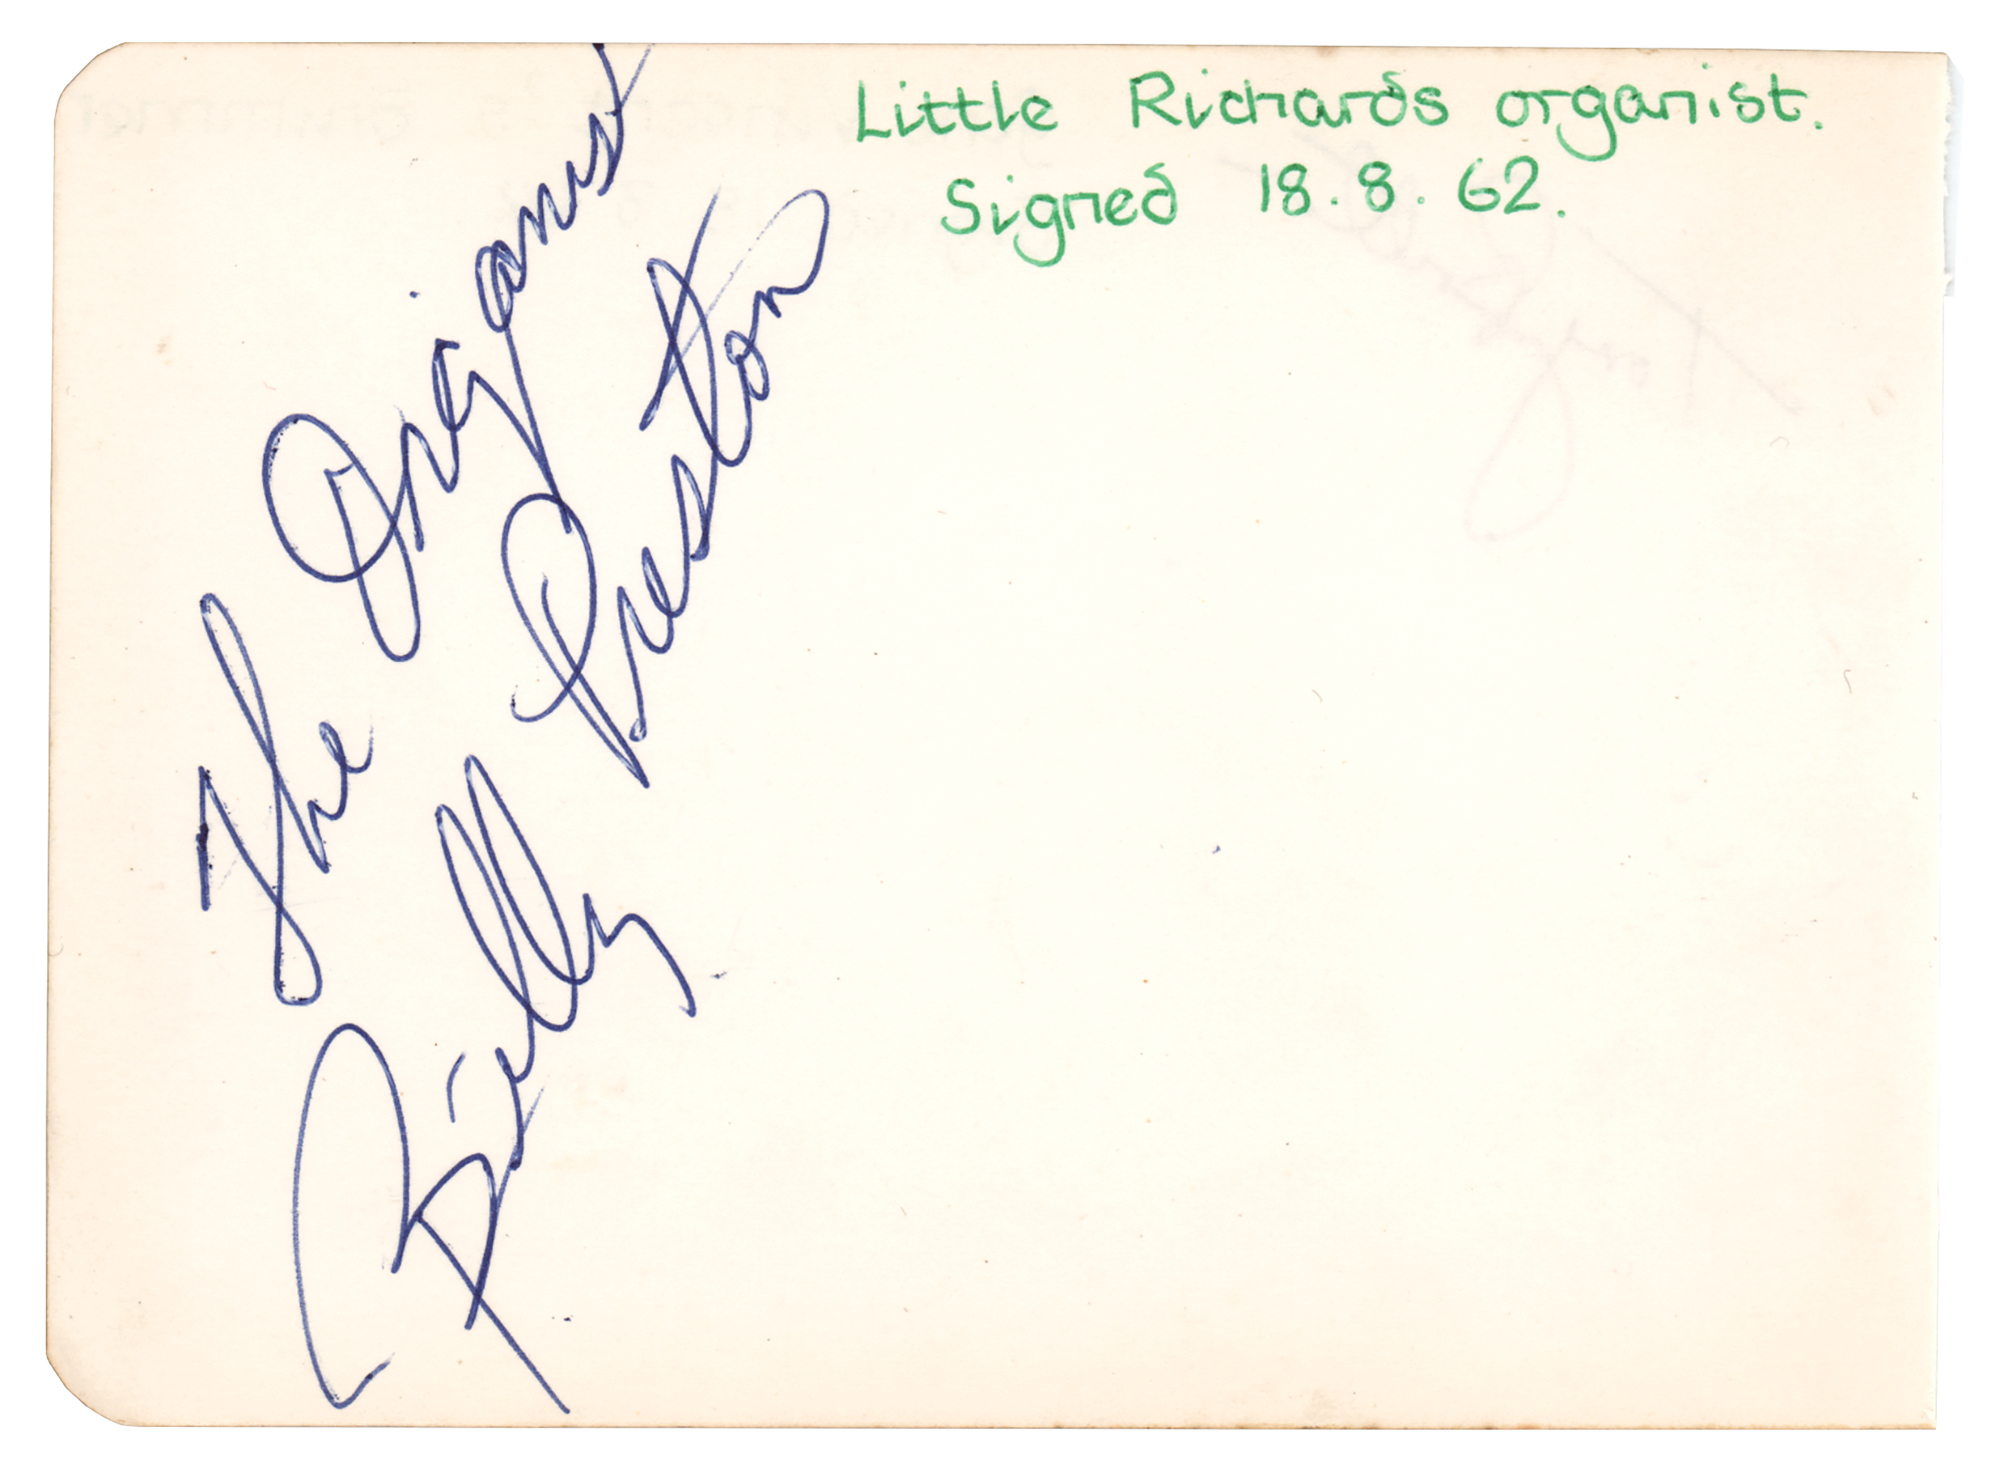 Little Richards organist.
Signed 18.8.62.
The Organist
Billy Preston